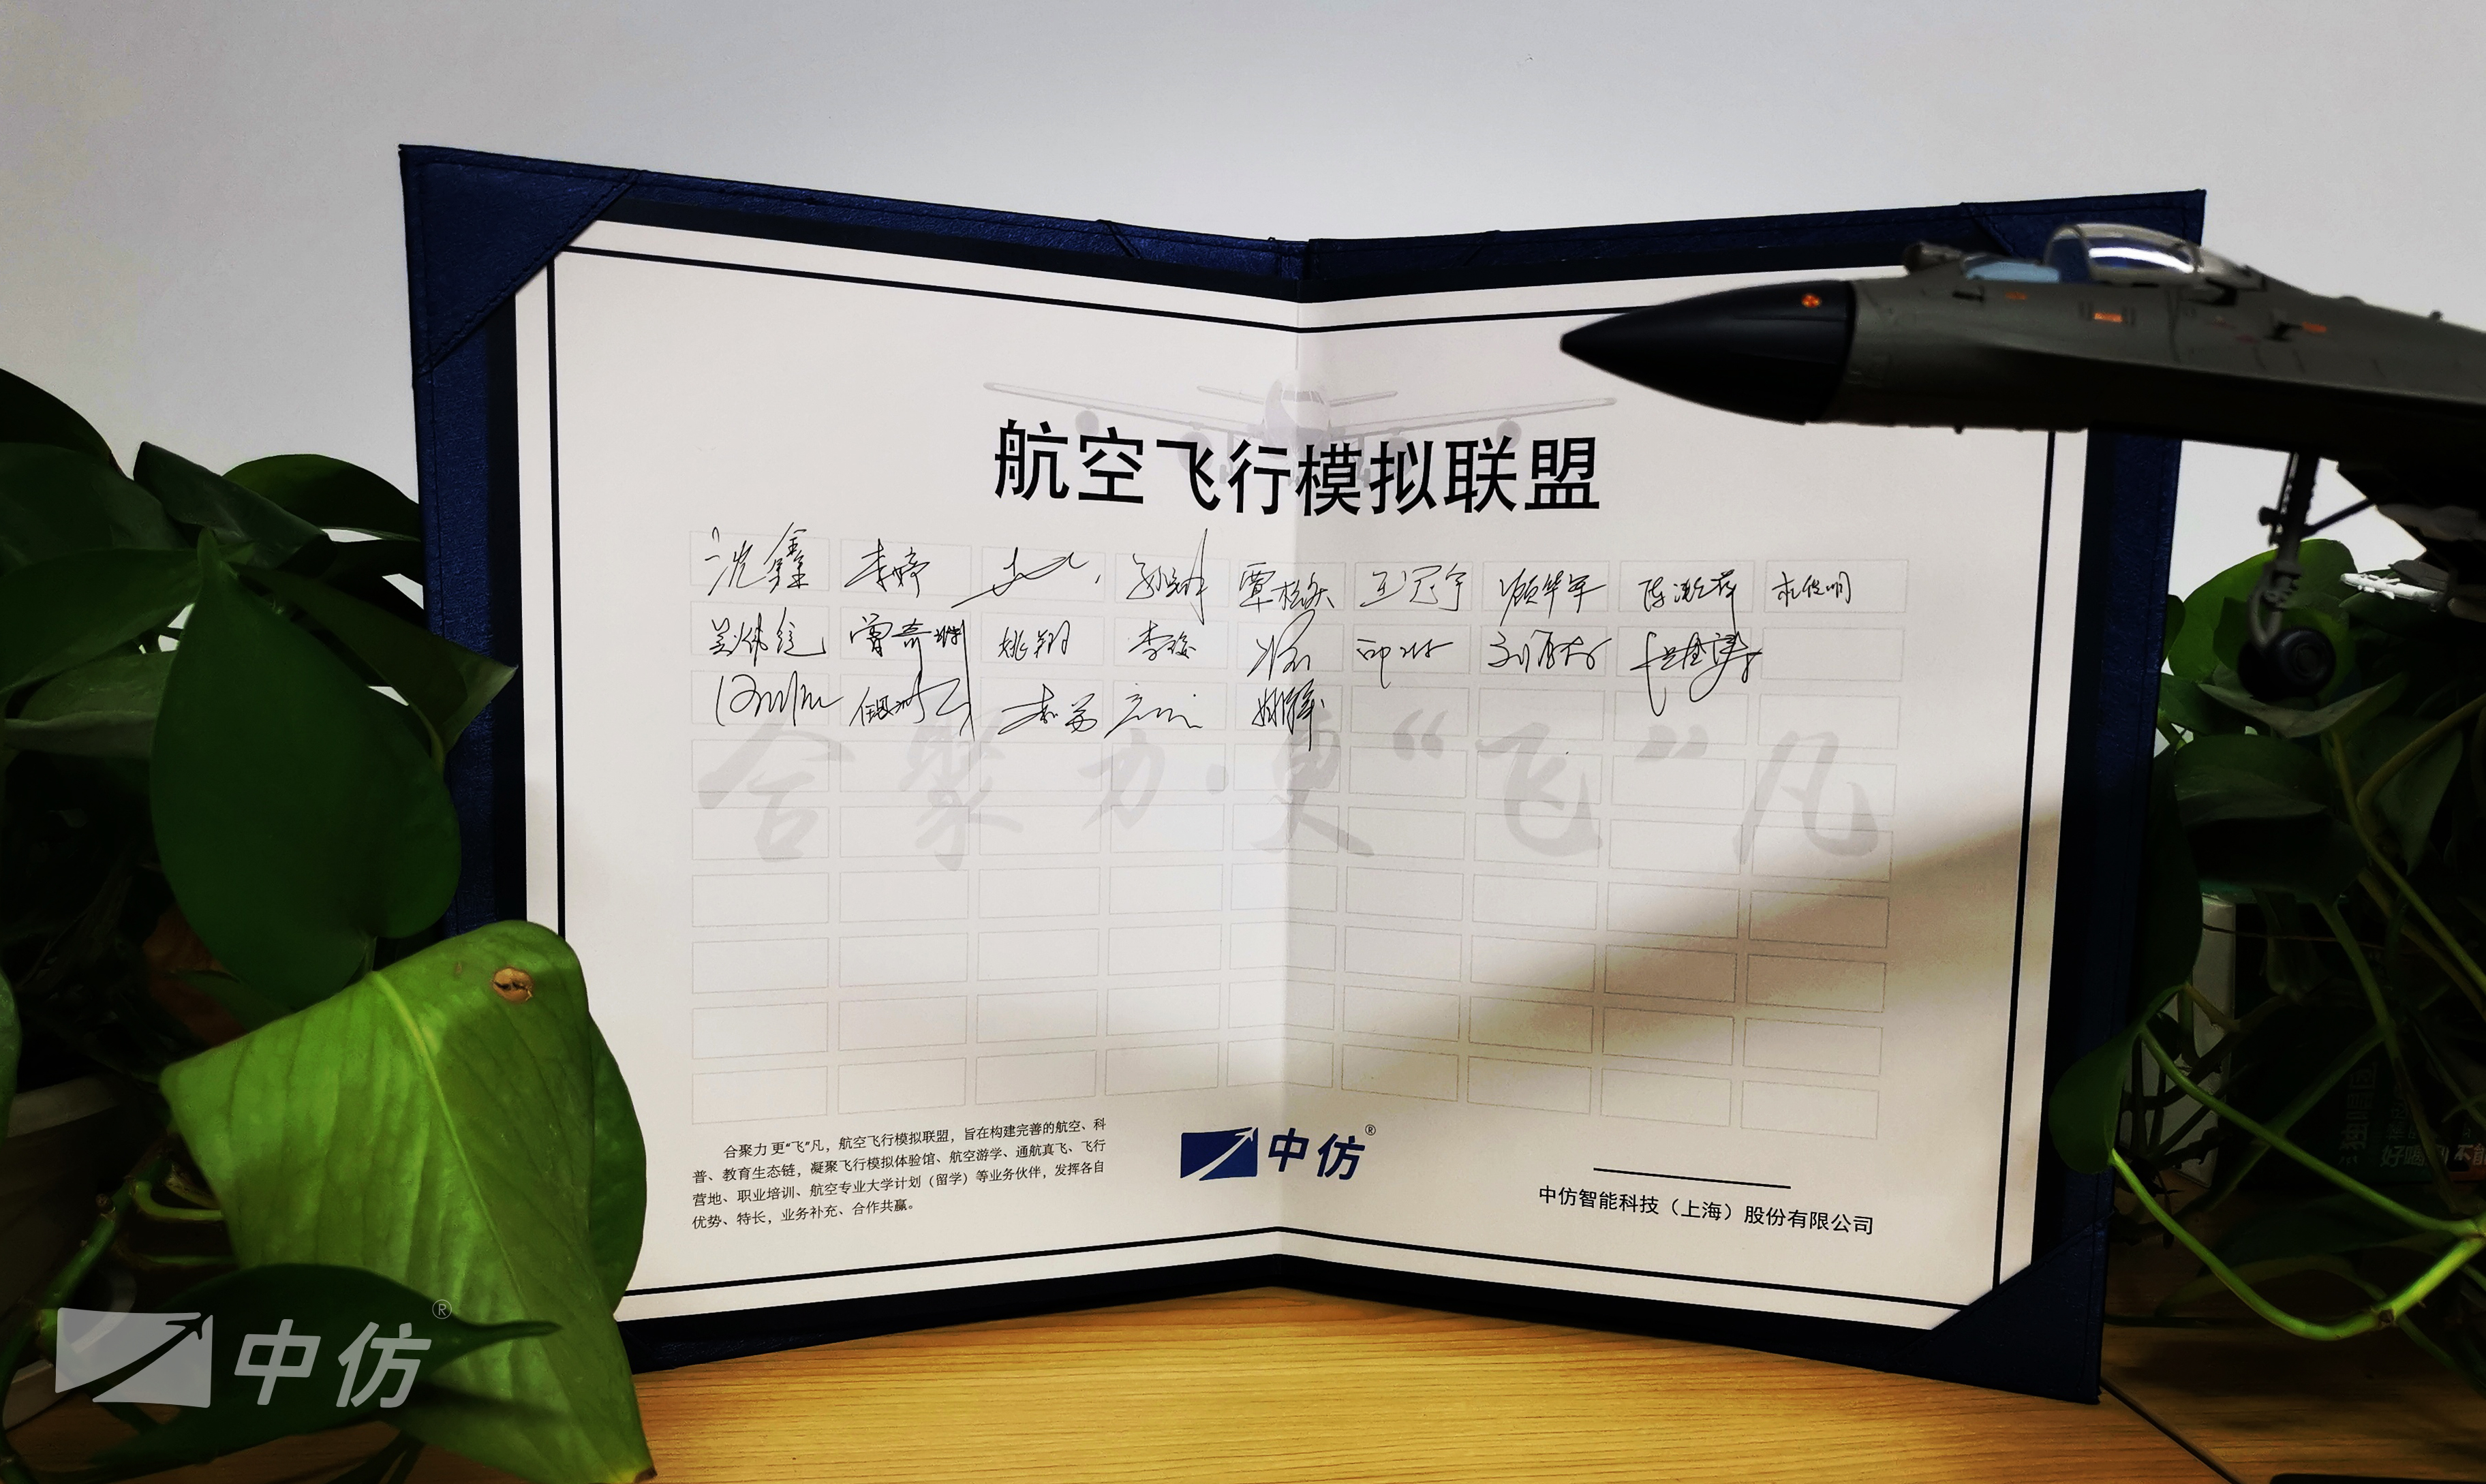 航空飞行模拟联盟
沈鑫 李婷 覃松矢 王冠宇 顾华军
曾奇琳 姚翔 李琼
合聚力·更“飞”凡
合聚力 更“飞”凡，航空飞行模拟联盟，旨在构建完善的航空、科
普、教育生态链，凝聚飞行模拟体验馆、航空游学、通航真飞、飞行
营地、职业培训、航空专业大学计划（留学）等业务伙伴，发挥各自
优势、特长，业务补充、合作共赢。
中仿®
中仿智能科技（上海）股份有限公司
中仿®